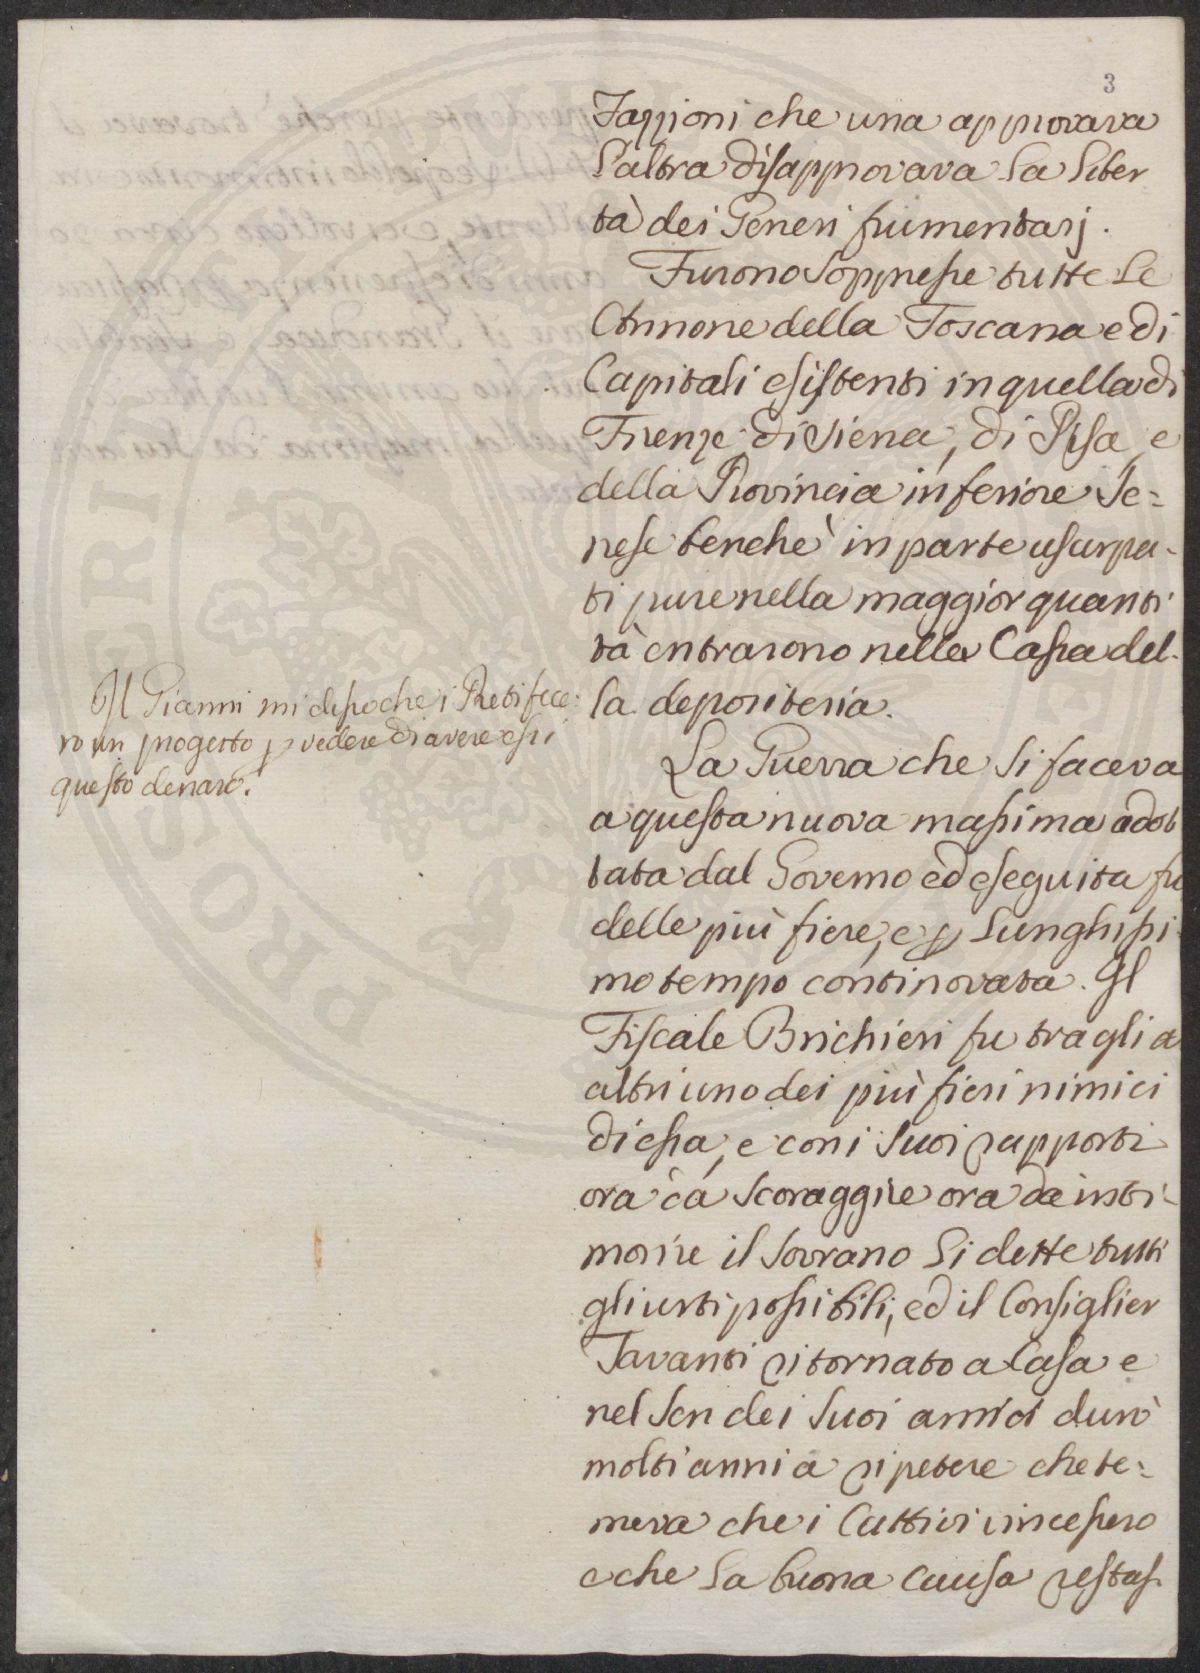 3
Fazzioni che una approvava
l'altra disapprovava la liber
tà dei Generi frumentarj.
Furono soppresse tutte le
Annone della Toscana e di
Capitali esistenti in quella di
Firenze, di Siena, di Pisa, e
della Provincia inferiore Se=
nese benchè in parte usurpa-
ti pure nella maggior quanti
tà entrarono nella Cassa del-
la depositeria.
Il Gianni mi disse che i Preti fece=
ro un progetto p vedere di avere essi
questo denaro.
La Guerra che si faceva
a questa nuova massima adot
tata dal Governo ed eseguita fu
delle più fiere, e p lunghissi-
mo tempo continovata. Il
Fiscale Brichieri fu tra gli a
altri uno dei più fieri nimici
di essa, e con i suoi rapporti
ora a scoraggire ora da inti-
morire il Sovrano li dette tutti
gli urti possibili, ed il Consiglier
Tavanti ritornato a Casa e
nel sen dei suoi amici durò
molti anni a ripetere che te=
meva che i Cattivi vincessero
e che la buona causa restas-
PROSPERI